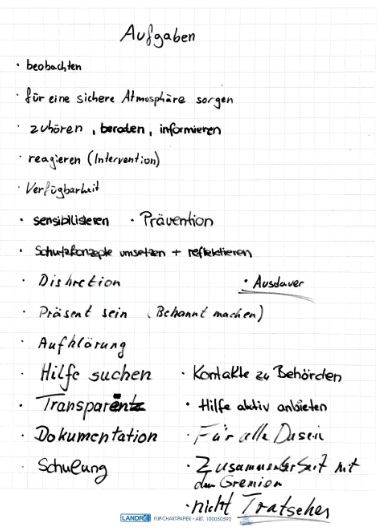 Aufgaben
• beobachten
• für eine sichere Atmosphäre sorgen
• zuhören, beraten, informieren
• reagieren (Intervention)
• Verfügbarkeit
• sensibilisieren • Prävention
• Schutzkonzepte umsetzen + reflektieren
• Diskretion • Ausdauer
• Präsent sein (Bekannt machen)
• Aufklärung
• Hilfe suchen • Kontakte zu Behörden
• Transparenz • Hilfe aktiv anbieten
• Dokumentation • Für alle Dasein
• Schulung • Zusammenarbeit mit
den Gremien
• nicht Tratschen
LANDRÉ FLIPCHARTPAPIER - ART. 100050592